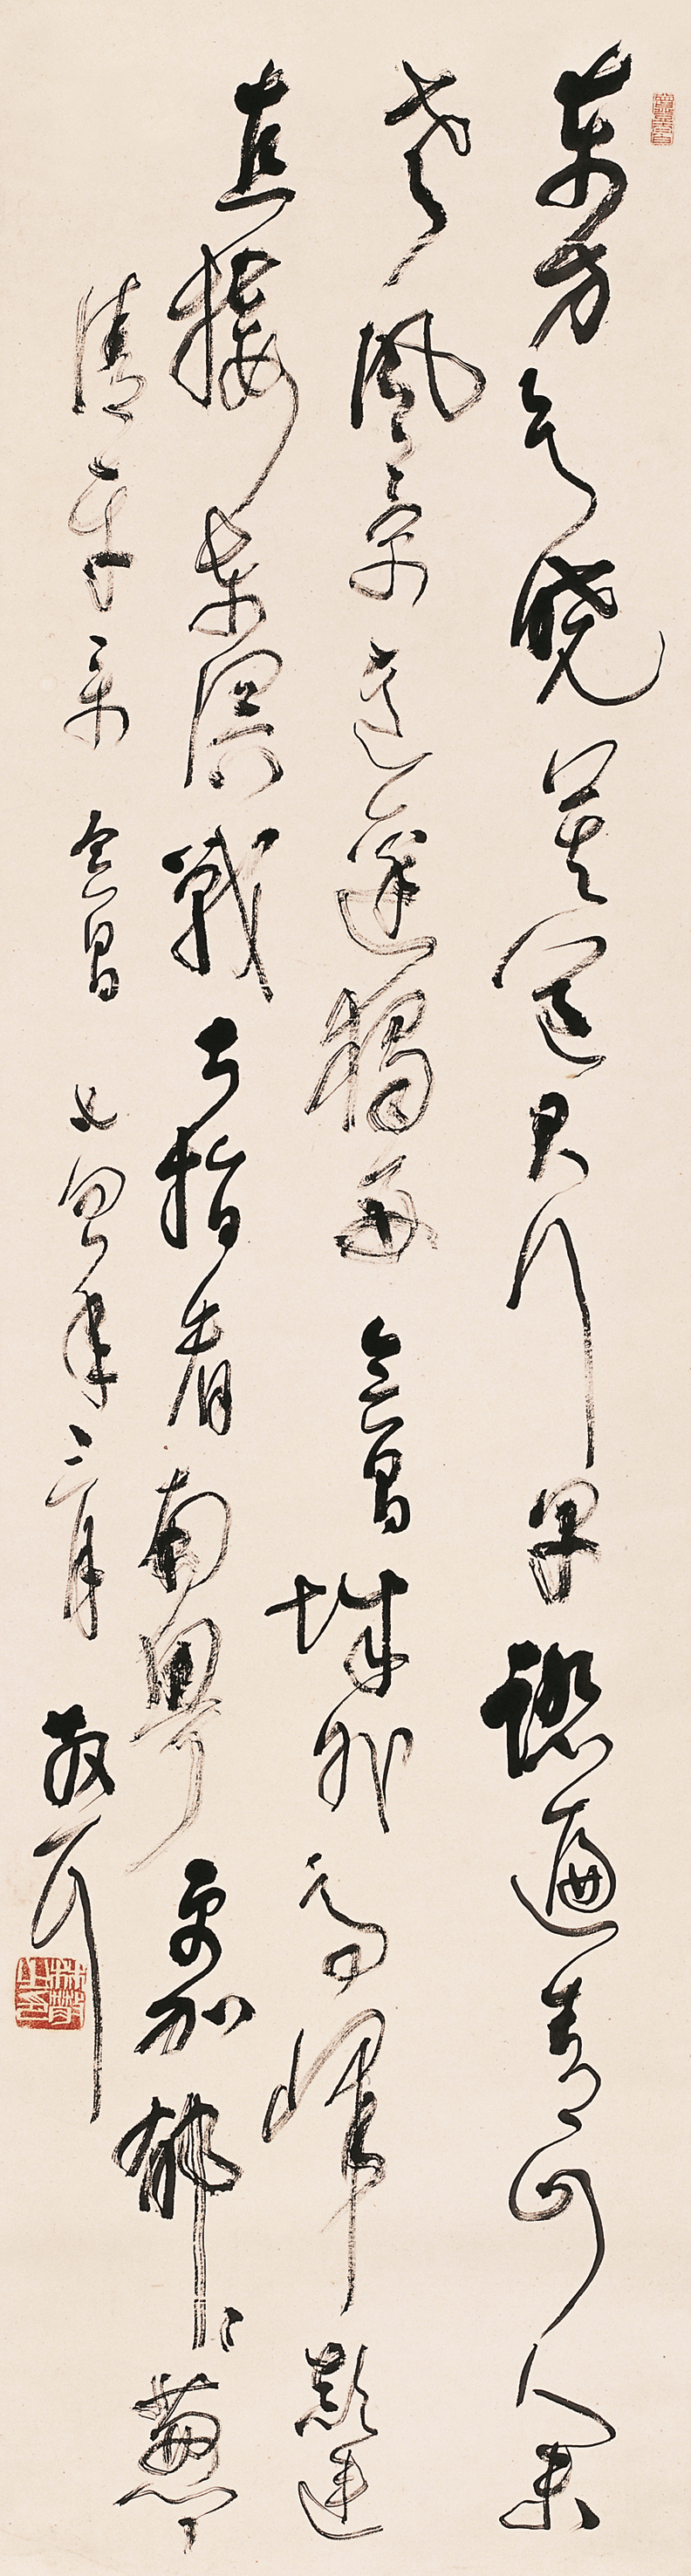 東方欲曉莫道君行早踏遍青山人未
老風景這邊獨好會昌城外高峰顛連
直接東溟戰士指看南粵更加郁〻蔥〻
清平樂 會昌 年三月 散耳
林散之印